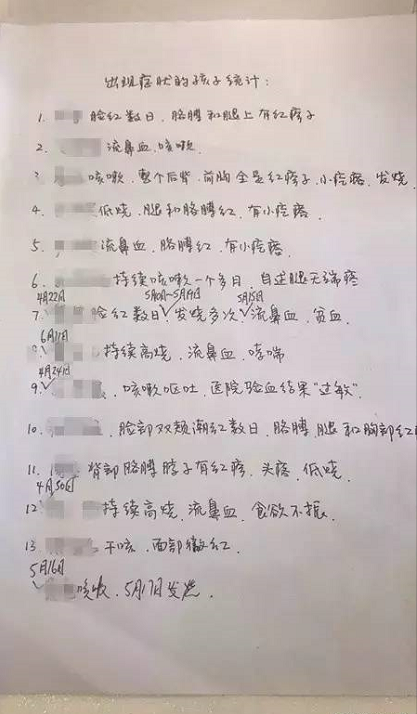 出现症状的孩子统计：
1. 脸红数日，胳膊和腿上有红疹子
2. 流鼻血，咳嗽.
3. 咳嗽、整个后背、前胸全是红疹子、小疙瘩、发烧
4. 低烧、腿和胳膊红、有小疙瘩.
5. 流鼻血、胳膊红、有小疙瘩.
6. 持续咳嗽一个多月、自述腿无端疼
4月22日 5月15日
7. 脸红数日✓发烧多次✓流鼻血、贫血
6月11日
8. 持续高烧、流鼻血、哮喘
4月24日
9.✓ 、咳嗽呕吐、医院验血结果“过敏”.
10. 、脸部双颊潮红数日、胳膊、腿和胸部全红
11. 背部胳膊脖子有红疹、头疼、低烧.
4月30日
12 持续高烧、流鼻血、食欲不振.
13. 干咳、面部微红.
5月16日
咳嗽、5月17日发烧.